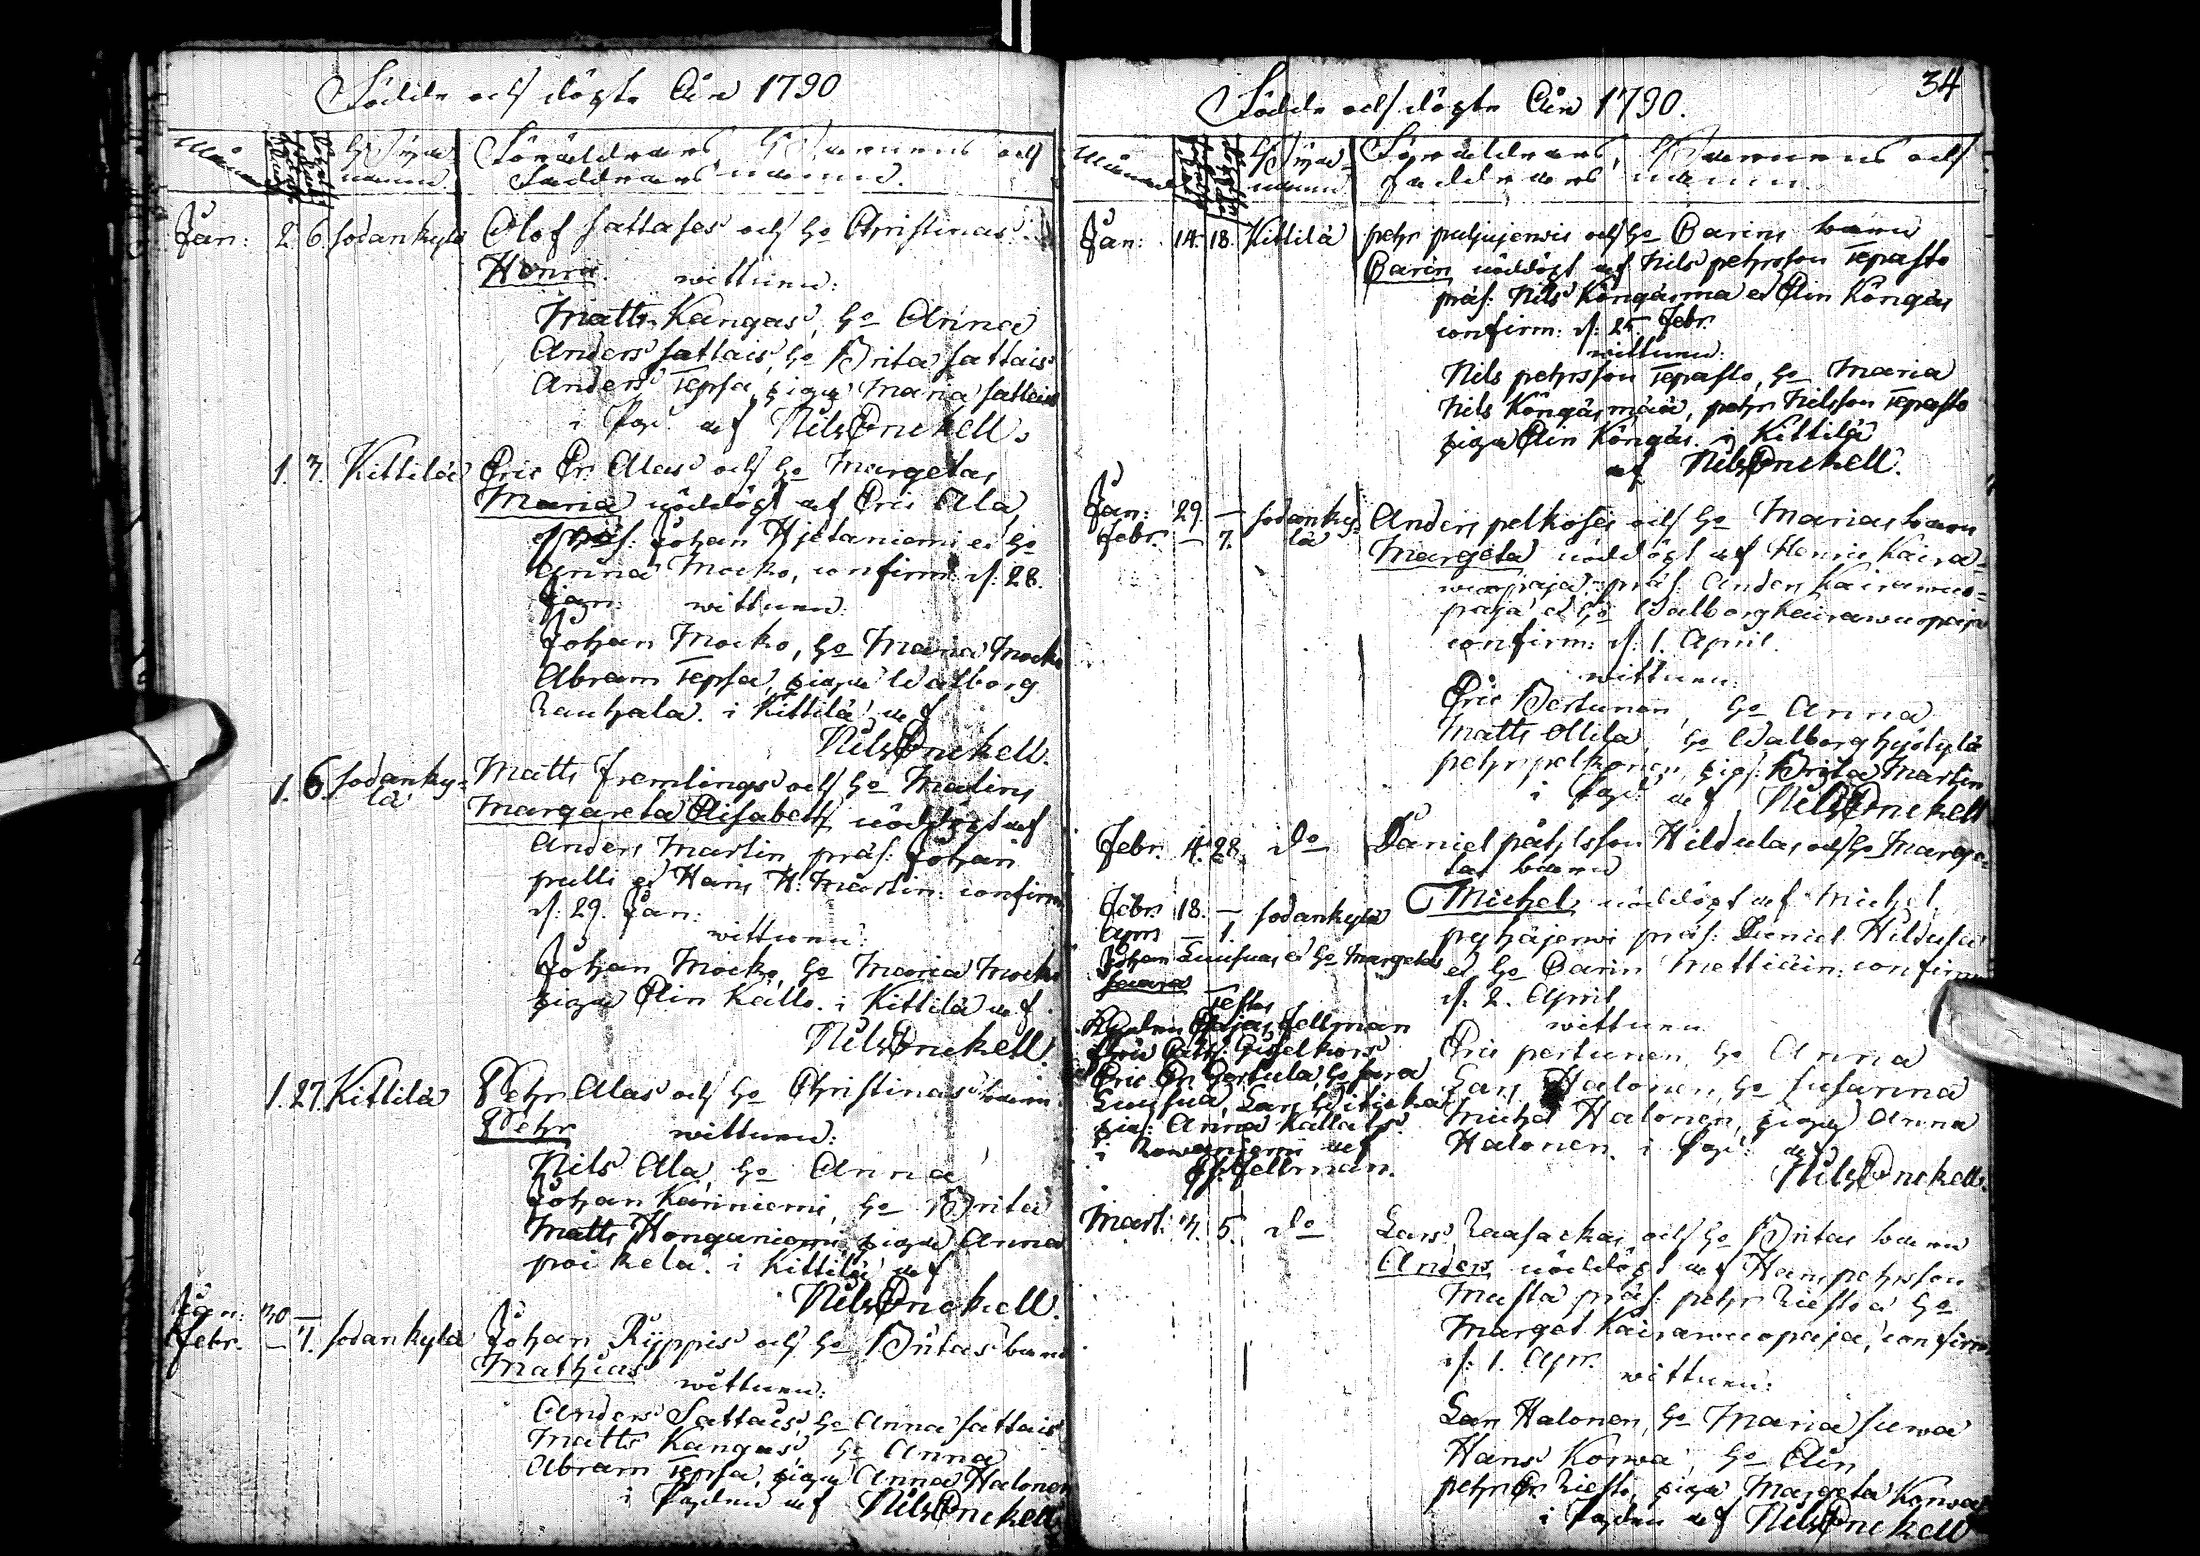 Födde och döpte Åhr 1790
Månad
Byns namn
Föräldrars, Barnens och
Faddrars namn.
Jan: 2. 6. Sodankylä Olof Sattases och ho Christinas
Henric wittnen:
Matts Kangas, ho Anna
Anders Sattais, ho Brita Sattais
Anders Tepsa, piga Maria Sattais
i Sod: af Nils Enckell.
1. 3. Kittilä Eric Er. Alas och ho Margetas
Maria nöddöpt af Eric Ala,
präs: Johan Hjetaniemi et ho
Anna Mocko, confirm: d: 28.
Jan: wittnen:
Johan Mocko, ho Maria Mocko
Abram Tepsa, piga Walborg
Rauhala. i Kittilä af
Nils Enckell.
1. 6. Sodanky-
lä
Matts Fremlings och ho Malins
Margareta Elisabeth nöddöpt af
Anders Martin, präs: Johan
pulli et Hans H: Martin: confirm
d: 29. Jan:
wittnen:
Johan Mocko, ho Maria Mocko
piga Elin Kallo. i Kittilä af
Nils Enckell.
1. 27. Kittilä Pehr Alas och ho Christinas barn
Pehr wittnen:
Nils Ala, ho Anna
Johan Kariniemi, ho Brita
Matts Honganiemi, piga Anna
poikela. i Kittilä af
Nils Enckell.
Jan: 30 —
Febr. — 7. Sodankylä Johan Ryppis och ho Britas barn
Mathias wittnen:
Anders Sattais, ho Anna Sattais
Matts Kangas, ho Anna
Abram Tepsa, piga Anna Halonen
i af Nils Enckell
34
Födde och döpte Åhr 1790.
Månad
Byns
namn
Föräldrars, Barnens och
Faddrars namn.
Jan: 14. 18. Kittilä pehr puljujerwis och ho Carins barn
Carin nöddöpt af Nils pehrsson Tepasto
präs: Nils Köngäsmä et Elin Köngäs
confirm: d: 25. Febr.
wittnen:
Nils pehrsson Tepasto, ho Maria
Nils Köngäsmää, pehr Nilsson Tepasto
piga Elin Köngäs. i Kittilä
af Nils Enckell.
Jan: 29. — Sodanky-
Febr. — 7. lä
Anders pelkoses och ho Marias barn
Margeta nöddöpt af Henric Kaira-
wuopaja: präs: Anders Kairawuo-
paja et ho Walborg Kairawuopaja
confirm: d: 1. April.
wittnen:
Eric Pertunen, ho Anna
Matts Ollila, ho Walborg
pehr pelkonen, pig: Brita Martin
i af Nils Enckell
Febr. 4. 28. do Daniel Hildulas och ho Marge-
tas barn
Michel nöddöpt af Michel
pyhäjerwi präs: Daniel Hildula
et ho Carin Mettiäin: confirm
d: 2. April
wittnen
Eric pertunen, ho Anna
Lars Halonen, ho Susanna
Michel Halonen, piga Anna
Halonen. i af
Nils Enckell.
Febr. 18. — Sodankylä
Apr. — 1.
Johan Luusuas et ho Margetas
Testes
Fellman
Eric
Eric Er. ho Sara
Luusua, Lars
pig: Anna Kallats.
i Rowaniemi af
Fellman.
Mart. 3. 5. do Lars Raasackas och ho Britas barn
Anders nöddöpt af Hans pehrsson
Musta präs: pehr Riesto et ho
Marget. Kairawuopaja, confirm.
d: 1. Apr. wittnen:
Lars Halonen, ho Maria Suwa
Hans Korwa, ho Elin
pehr Er. Riesto, piga Margeta Korwa
i af Nils Enckell